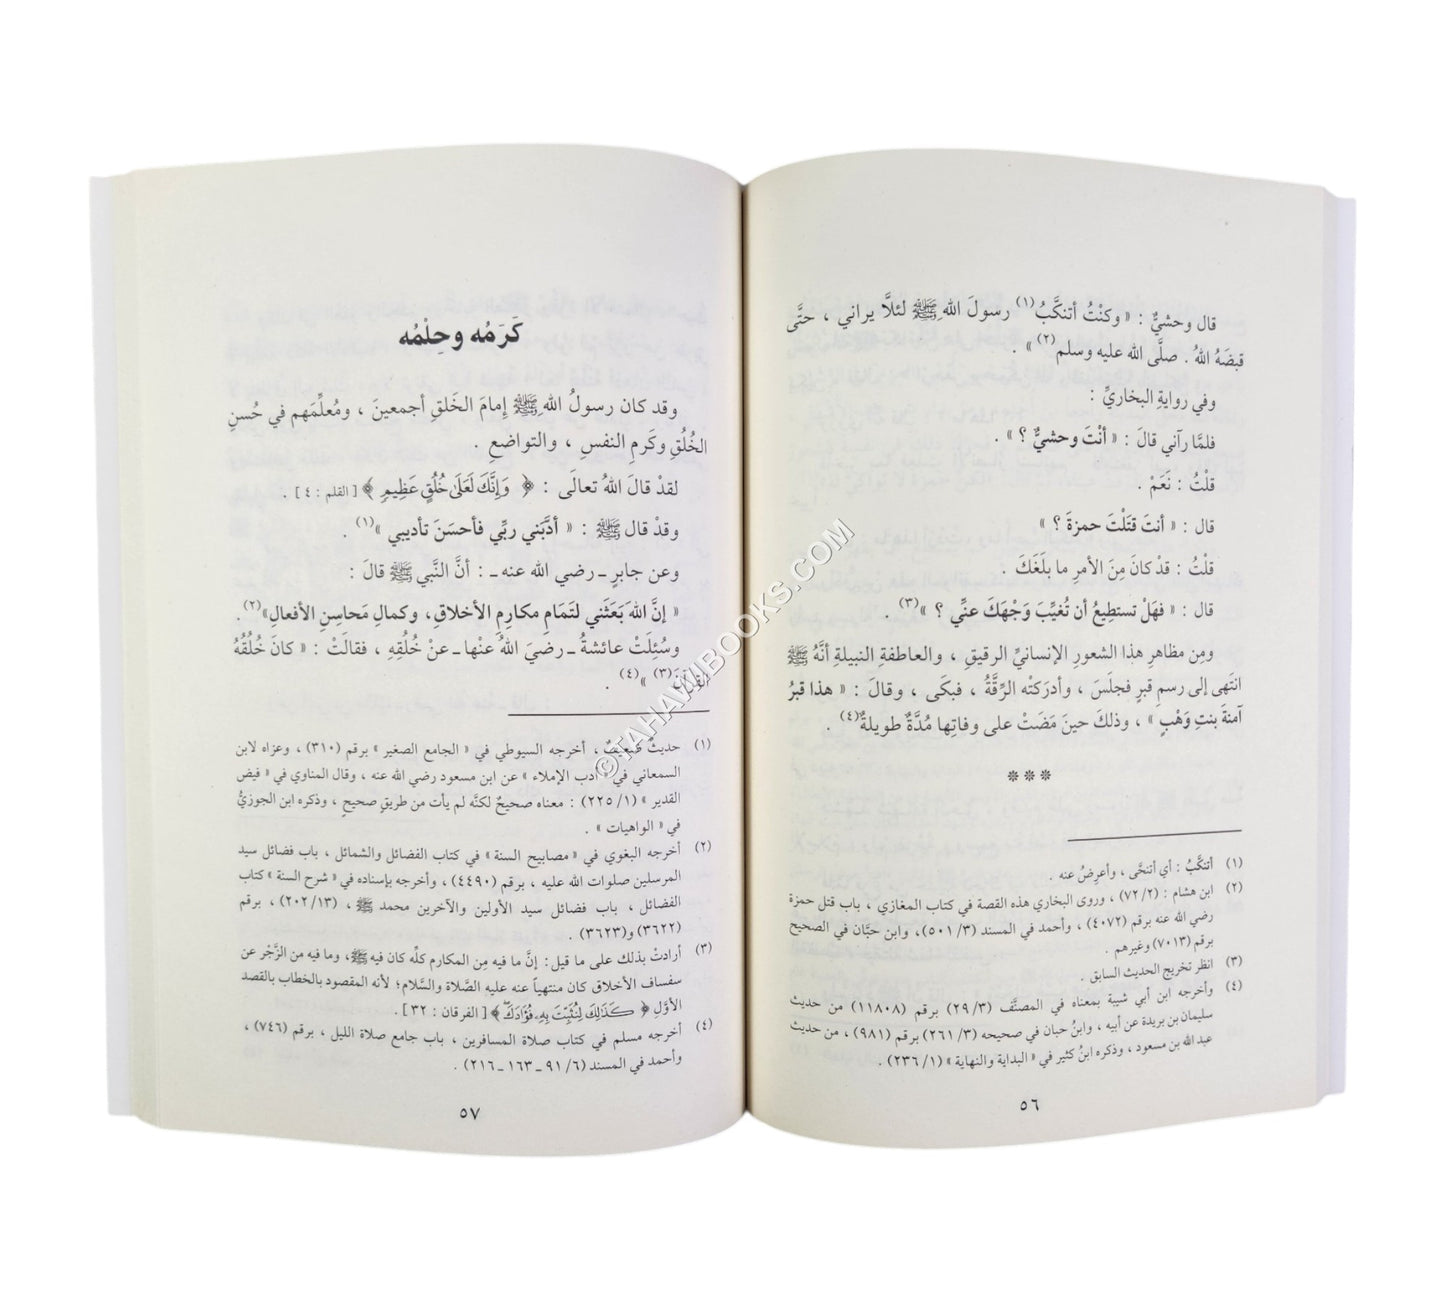 قال وحشيٌّ : « وكنْتُ أتنكَّبُ(١) رسولَ اللهِ ﷺ لئلَّا يراني ، حتَّى
قبضَهُ اللهُ . صلَّى الله عليه وسلم(٢) » .
وفي روايةِ البخاريِّ :
فلمَّا رآني قالَ : « أنْتَ وحشيٌّ ؟ » .
قلْتُ : نَعَمْ .
قال : « أنتَ قتَلْتَ حمزةَ ؟ »
قلْتُ : قدْ كانَ مِنَ الأمرِ ما بلَغَكَ .
قال : « فهَلْ تستطيعُ أن تُغيِّبَ وَجْهَكَ عنِّي ؟ »(٣) .
ومِن مظاهرِ هذا الشعورِ الإنسانيِّ الرقيقِ ، والعاطفةِ النبيلةِ أنَّهُ ﷺ
انتَهى إلى رسمِ قبرٍ فجلَسَ ، وأدرَكتْه الرِقَّةُ ، فبكَى ، وقالَ : « هذا قبرُ
آمنةَ بنتِ وَهْبٍ » ، وذلكَ حينَ مَضَتْ على وفاتِها مُدَّةٌ طويلةٌ(٤) .
***
(١) أتنكَّبُ : أي أتنحَّى ، وأعرِضُ عنه .
(٢) ابن هشام : (٧٢/٢) ، وروى البخاري هذه القصة في كتاب المغازي ، باب قتل حمزة
رضي الله عنه برقم (٤٠٧٢) ، وأحمد في المسند (٥٠١/٣) ، وابن حبَّان في الصحيح
برقم (٧٠١٣) وغيرهم .
(٣) انظر تخريج الحديث السابق .
(٤) وأخرجه ابن أبي شيبة بمعناه في المصنَّف (٢٩/٣) برقم (١١٨٠٨) من حديث
سليمان بن بريدة عن أبيه ، وابنُ حبان في صحيحه (٢٦١/٣) برقم (٩٨١) ، من حديث
عبد الله بن مسعود ، وذكره ابنُ كثير في « البداية والنهاية » (٢٣٦/١) .
٥٦
كَرَمُه وحِلْمُه
وقد كان رسولُ اللهِ ﷺ إمامَ الخَلقِ أجمعينَ ، ومُعلِّمَهم في حُسنِ
الخُلُقِ وكَرمِ النفسِ ، والتواضعِ .
لقدْ قالَ اللهُ تعالَى : ﴿ وَإِنَّكَ لَعَلَىٰ خُلُقٍ عَظِيمٍ ﴾ [ القلم : ٤ ] .
وقدْ قال ﷺ : « أدَّبَني ربِّي فأحسَنَ تأديبي »(١) .
وعن جابرٍ ـ رضي الله عنه ـ : أنَّ النَّبي ﷺ قالَ :
« إنَّ اللهَ بَعَثَني لتَمَامِ مكارِمِ الأخلاقِ، وكمالِ مَحاسِنِ الأفعالِ»(٢) .
وسُئِلَتْ عائشةُ ـ رضيَ اللهُ عنْها ـ عنْ خُلُقِهِ ، فقالَتْ : « كانَ خُلُقُهُ
القرآنَ(٣) »(٤) .
(١) حديثٌ ضعيفٌ ، أخرجه السيوطي في « الجامع الصغير » برقم (٣١٠) ، وعزاه لابن
السمعاني في « أدب الإملاء » عن ابن مسعود رضي الله عنه ، وقال المناوي في « فيض
القدير » (٢٢٥/١) : معناه صحيحٌ لكنَّه لم يأت من طريقٍ صحيحٍ ، وذكره ابن الجوزيُّ
في « الواهيات » .
(٢) أخرجه البغوي في « مصابيح السنة » في كتاب الفضائل والشمائل ، باب فضائل سيد
المرسلين صلوات الله عليه ، برقم (٤٤٩٠) ، وأخرجه بإسناده في « شرح السنة » كتاب
الفضائل ، باب فضائل سيد الأولين والآخرين محمد ﷺ ، (٢٠٢/١٣) ، برقم
(٣٦٢٢) و(٣٦٢٣) .
(٣) أرادتْ بذلك على ما قيل : إنَّ ما فيه مِن المكارم كلِّه كان فيه ﷺ، وما فيه من الزَّجْر عن
سفساف الأخلاق كان منتهياً عنه عليه الصَّلاة والسَّلام؛ لأنه المقصود بالخطاب بالقصد
الأوَّلِ ﴿ كَذَٰلِكَ لِنُثَبِّتَ بِهِۦ فُؤَادَكَ ۖ ﴾ [ الفرقان : ٣٢ ] .
(٤) أخرجه مسلم في كتاب صلاة المسافرين ، باب جامع صلاة الليل ، برقم (٧٤٦) ،
وأحمد في المسند (٩١/٦ ـ ١٦٣ ـ ٢١٦) .
٥٧
©TAHAWIBOOKS.COM